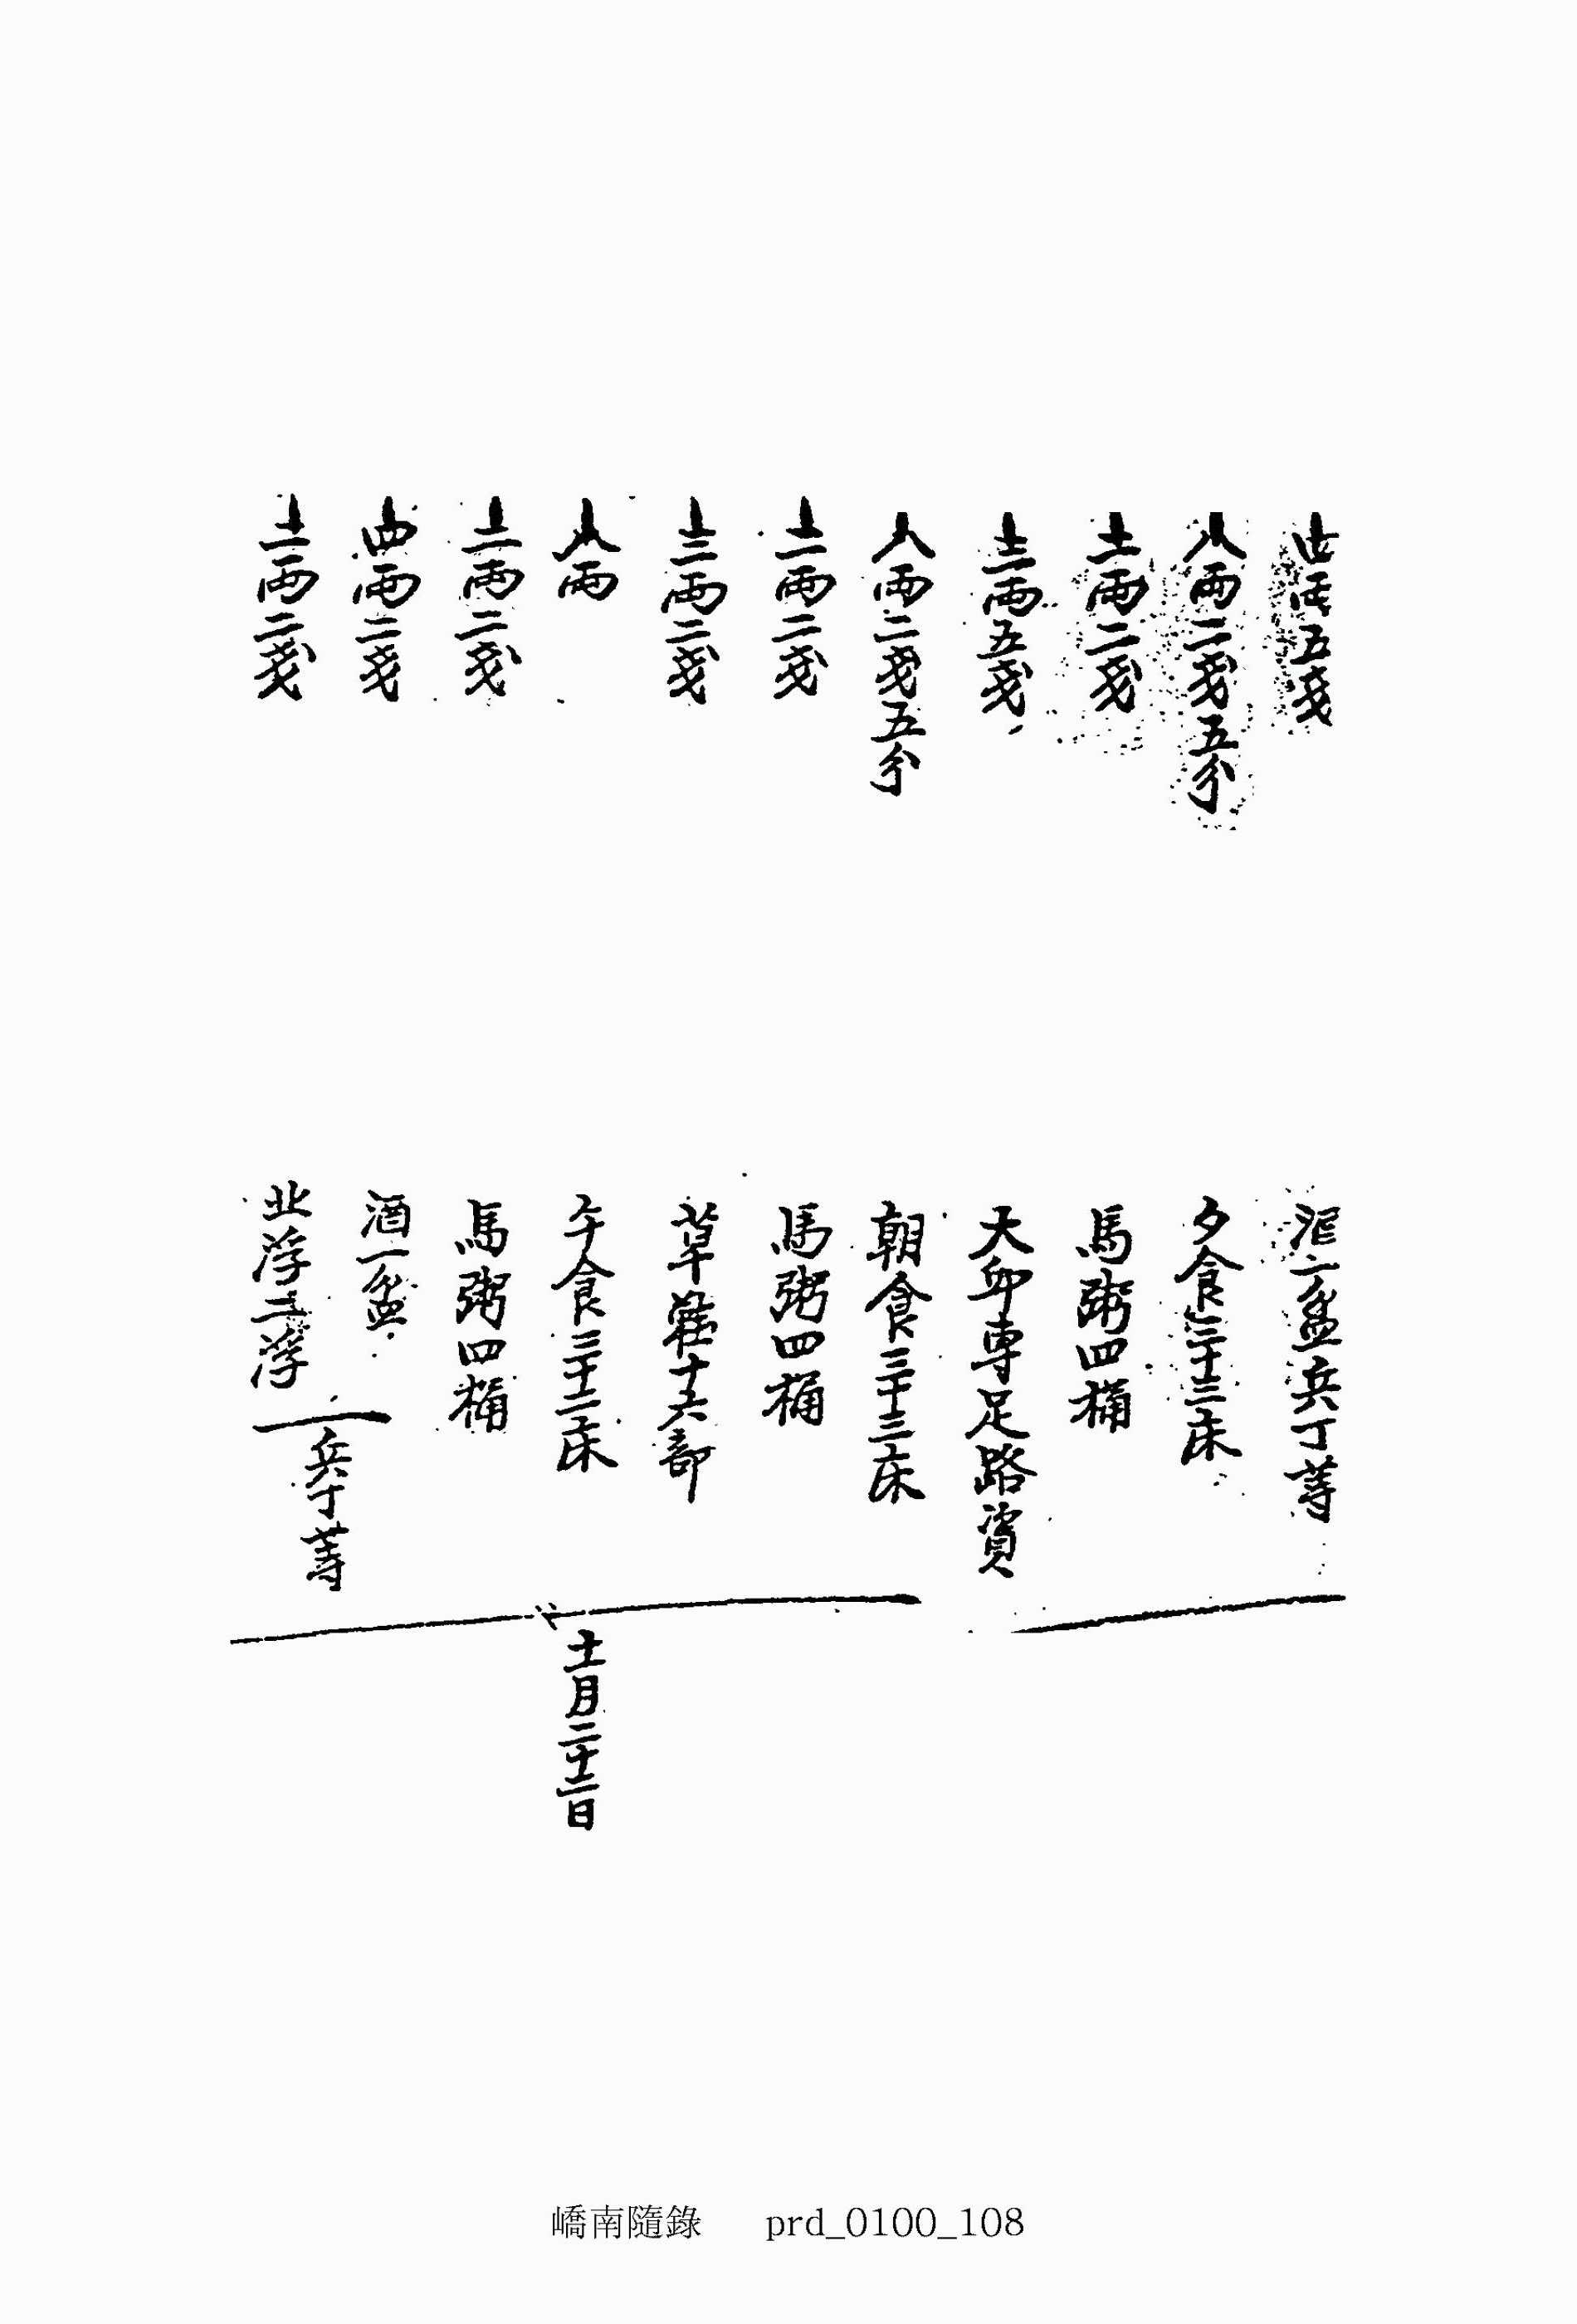 兩五戔
二盆兵丁等
上八兩二戔五分
夕食三十三床
上一兩二戔
馬粥四桶
上三兩五戔
大邱專足路資
上八兩二戔五分
朝食三十三床
上一兩二戔
馬粥四桶
上三兩二戔
草鞋十六部
上八兩
午食三十二床
上一兩二戔
馬粥四桶
上四兩二戔
酒一盆
上一兩二戔
北浮二浮
兵丁等
十一月二十二日
嶠南隨錄 prd_0100_108